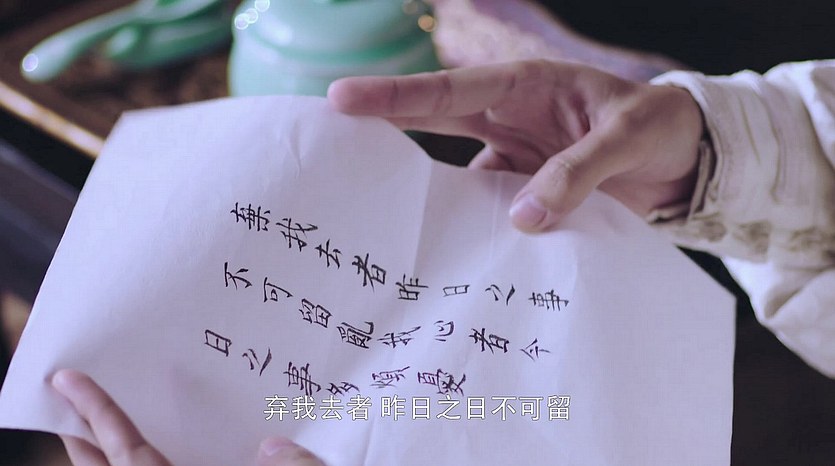 棄我去者昨日之事
不可留亂我心者今
日之事多煩憂
弃我去者 昨日之日不可留